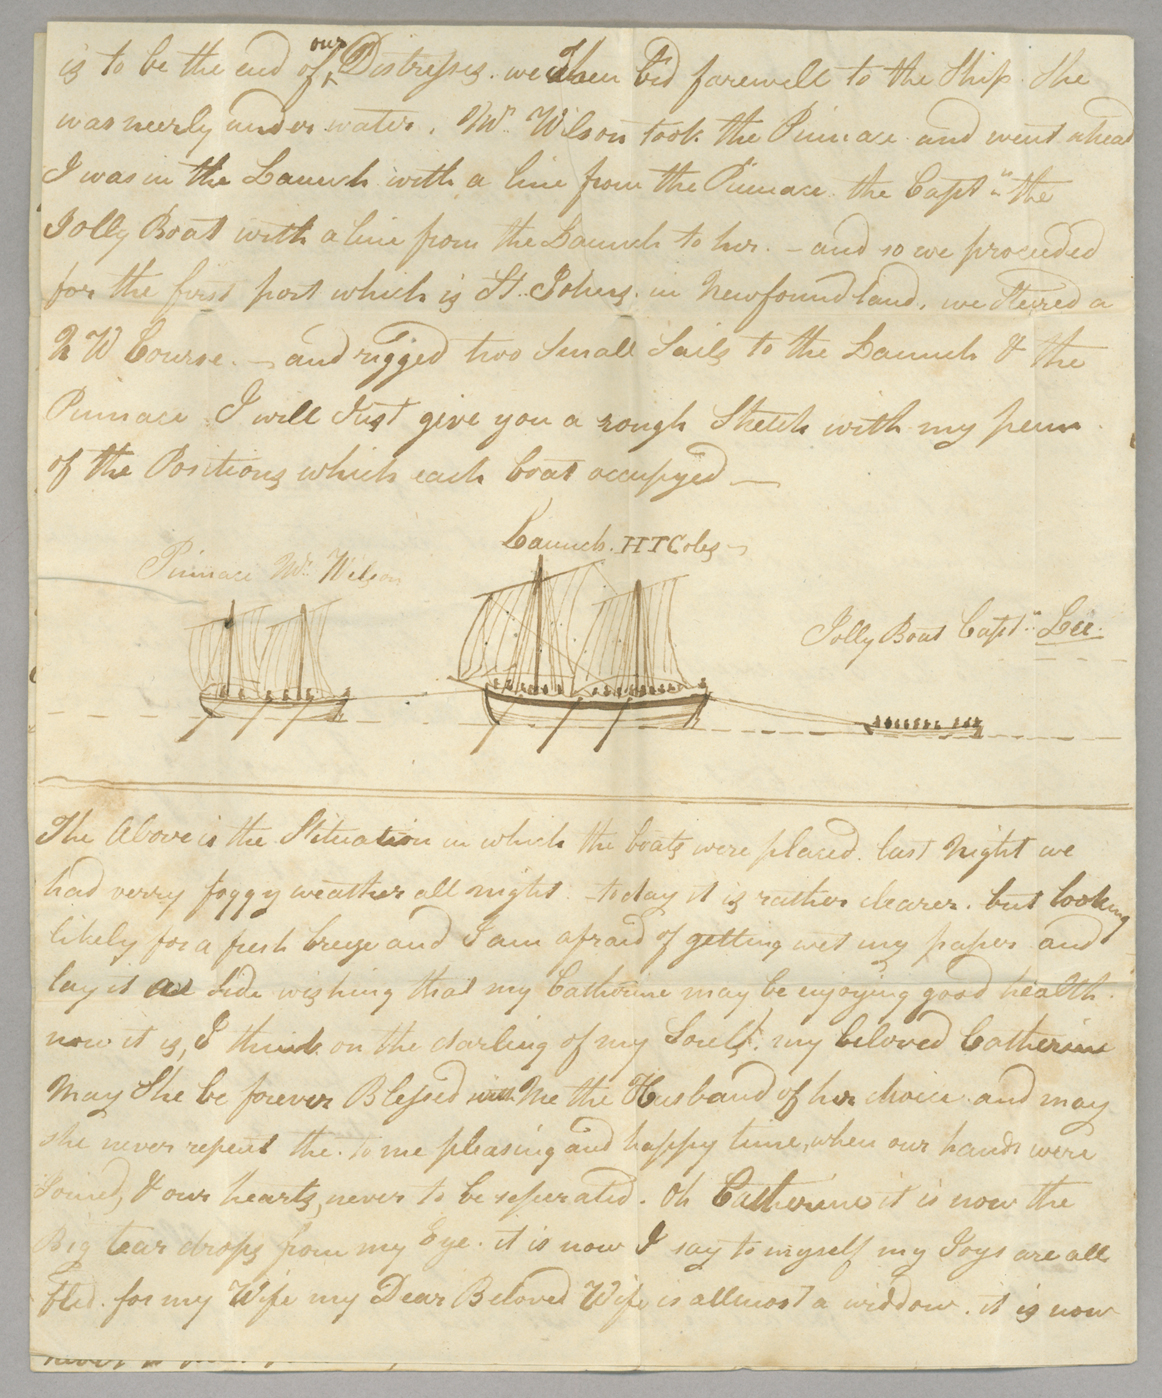 is to be the end of our Distresses. we then bid farewell to the Ship. She
was neerly under water. Mr. Wilson took the Pinnace and went ahead
I was in the Launch with a line from the Pinnace. the Captn. in the
Jolly Boat with a line from the Launch to her. – and so we proceeded
for the first port which is St. Johns. in Newfoundland. we stered a
N W Course. – and rigged two Small Sails to the Launch & the
Pinnace I will Just give you a rough Sketch with my penn
of the Positions which each boat occupyed —
Launch. HTColes
Pinnace Mr. Wilson
Jolly Boat Captn. Lee.
The Above is the Situation in which the boats were placed. last Night we
had verry foggy weather all night. – today it is rather clearer. but looking
likely for a fresh breeze and I am afraid of getting wet my paper and
lay it a Side wishing that my Catherine may be enjoying good health.
now it is, I think on the darling of my Soul. my beloved Catherine
May She be forever Blessed with Me the Husband of her choice. and may
she never repent the. to me pleasing and happy time, when our hands were
Joined, & our hearts, never to be seperated. Oh Catherine it is now the
Big tear drops from my Eye. it is now I say to myself my Joys are all
fled. for my Wife my Dear Beloved Wife is allmost a widdow. it is now